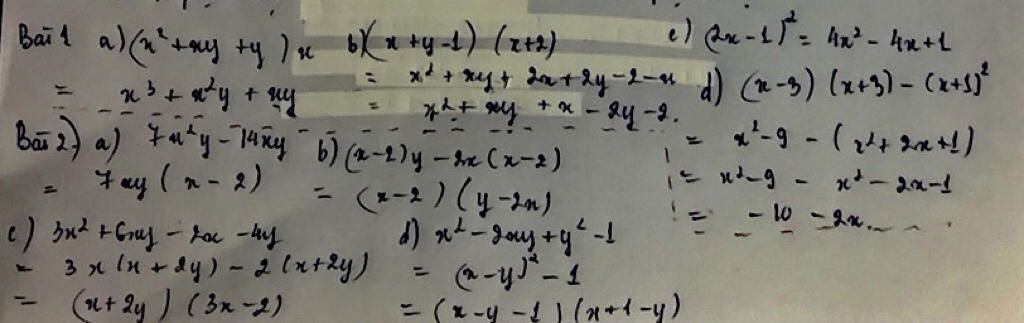 Bài 1 a) (x² + xy + y) x
= x³ + x²y + xy
b) (x + y - 1) (x+2)
= x² + xy + 2x + 2y - 2 - x
= x² + xy + x - 2y - 2.
c) (2x - 1)² = 4x² - 4x + 1
d) (x - 3) (x + 3) - (x + 1)²
= x² - 9 - (x² + 2x + 1)
= x² - 9 - x² - 2x - 1
= - 10 - 2x.
Bài 2) a) 7x²y - 14xy
= 7xy (x - 2)
b) (x - 2)y - 2x (x - 2)
= (x - 2) (y - 2x)
c) 3x² + 6xy - 2x - 4y
= 3x (x + 2y) - 2 (x + 2y)
= (x + 2y) (3x - 2)
d) x² - 2xy + y² - 1
= (x - y)² - 1
= (x - y - 1) (x + 1 - y)